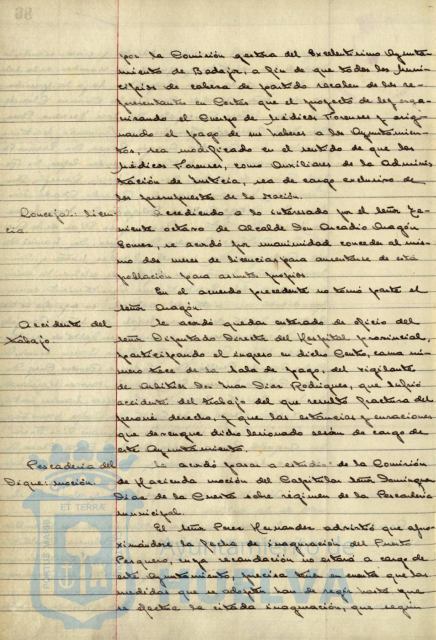 por la Comisión gestora del Excelentísimo Ayunta-
miento de Badajoz, a fin de que todos los Muni-
cipios de cabeza de partido recaben de los re-
presentantes en Cortes que el proyecto de ley orga-
nizando el Cuerpo de Médicos Forenses y asig-
nando el pago de sus haberes a los Ayuntamien-
tos, sea modificado en el sentido de que los
Médicos Forenses, como Auxiliares de la Adminis-
tración de Justicia, sea de cargo exclusivo de
los presupuestos de la Nación.
Concejal: licen-
cia.
Accediendo a lo interesado por el señor Te-
niente octavo de Alcalde Don Arcadio Aragón
Gomez, se acordó por unanimidad conceder al mis-
mo dos meses de licencia para ausentarse de esta
población para asuntos propios.
En el acuerdo precedente no tomó parte el
señor Aragón.
Accidente del
trabajo
Se acordó quedar enterado de oficio del
señor Diputado Director del Hospital provincial,
participando el ingreso en dicho Centro, cama nú-
mero trece de la Sala de pago, del vigilante
de Arbitrios Don Juan Diaz Rodriguez, que sufrió
accidente del trabajo del que resultó fractura del
peroné derecho, y que las estancias y curaciones
que devengue dicho lesionado serán de cargo de
este Ayuntamiento.
Pescaderia del
Dique: moción.
Se acordó pasar a estudio de la Comisión
de Hacienda moción del Capitular señor Dominguez
Diaz de la Cuesta sobre régimen de la Pescadería
municipal.
El señor Perez Hernandez advirtió que apro-
ximándose la fecha de inauguración del Puerto
Pesquero, cuya recaudación no estará a cargo de
este Ayuntamiento, precisa tener en cuenta que las
medidas que se adopten han de regir hasta que
se efectue la citada inauguración, que según
ET TERRAE
PORTUS MARIS
Ayuntamiento de
HUELVA